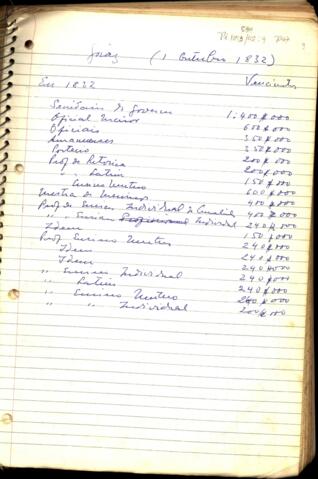 Goiaz (1 Outubro 1832)
Em 1832 Vencimentos
Secretario de Governo 1.400$000
Oficial Maior 600$000
Oficiais 350$000
Amanuenses 350$000
Porteiro 200$000
Prof. de Retorica 200$000
" " Latim 150$000
Ensino Mutuo 600$000
Mestra de Meninas 400$000
Prof. de Ensino Individual de 400$000
" " Ensino Individual 240$000
Idem 150$000
Prof. Ensino Mutuo 240$000
Idem 240$000
Idem 240$000
" Ensino Individual 240$000
" Latim 240$000
" Ensino Mutuo 200$000
" " Individual 200$000